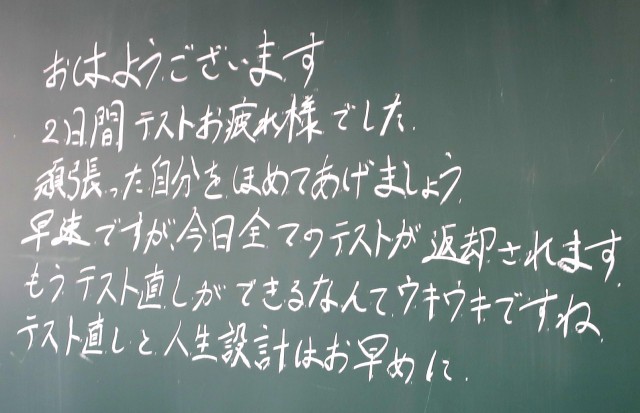 おはようございます
2日間テストお疲れ様でした.
頑張った自分をほめてあげましょう.
早速ですが、今日全てのテストが返却されます.
もうテスト直しができるなんてウキウキですね.
テスト直しと人生設計はお早めに.